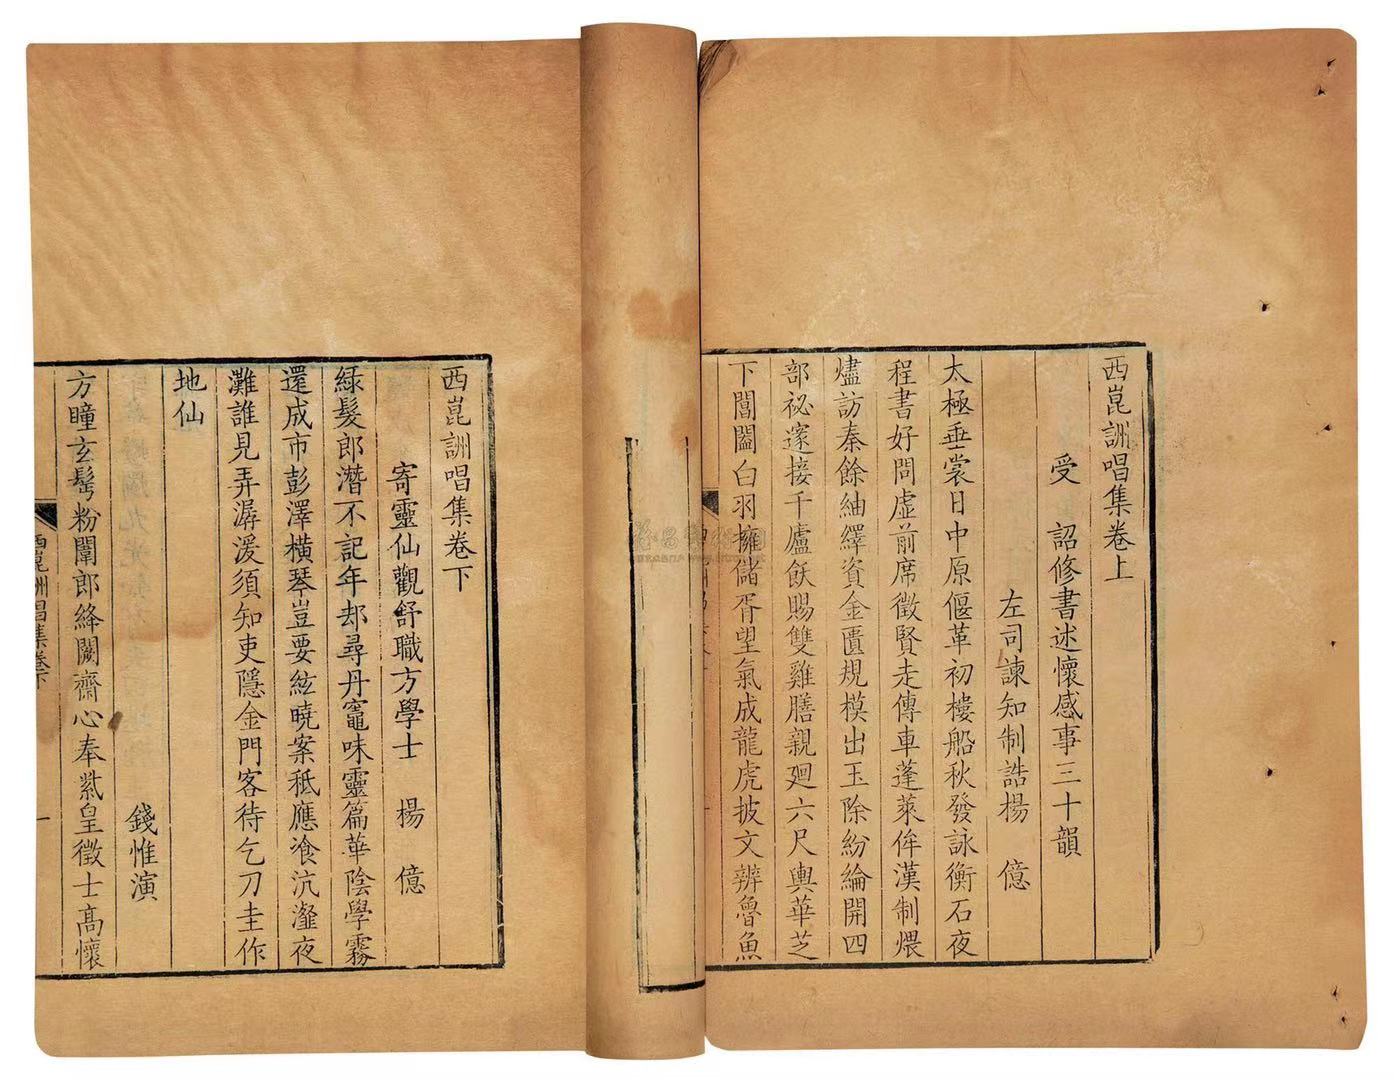 西崑詶唱集卷上
受　詔修書述懷感事三十韻
左司諫知制誥楊　億
太極垂裳日中原偃革初樓船秋發詠衡石夜
程書好問虛前席徵賢走傳車蓬萊侔漢制煨
燼訪秦餘紬繹資金匱規模出玉除紛綸開四
部祕邃接千廬飫賜雙雞膳親廻六尺輿華芝
下閶闔白羽擁儲胥望氣成龍虎披文辨魯魚
西崑詶唱集卷下
寄靈仙觀舒職方學士　楊　億
綠髮郎潛不記年却尋丹竈味靈篇華陰學霧
還成市彭澤橫琴豈要絃曉案秪應飡沆瀣夜
灘誰見弄潺湲須知吏隱金門客待乞刀圭作
地仙
錢惟演
方瞳玄髩粉闈郎絳闕齋心奉紫皇徵士高懷
西崑詶唱集卷下
一